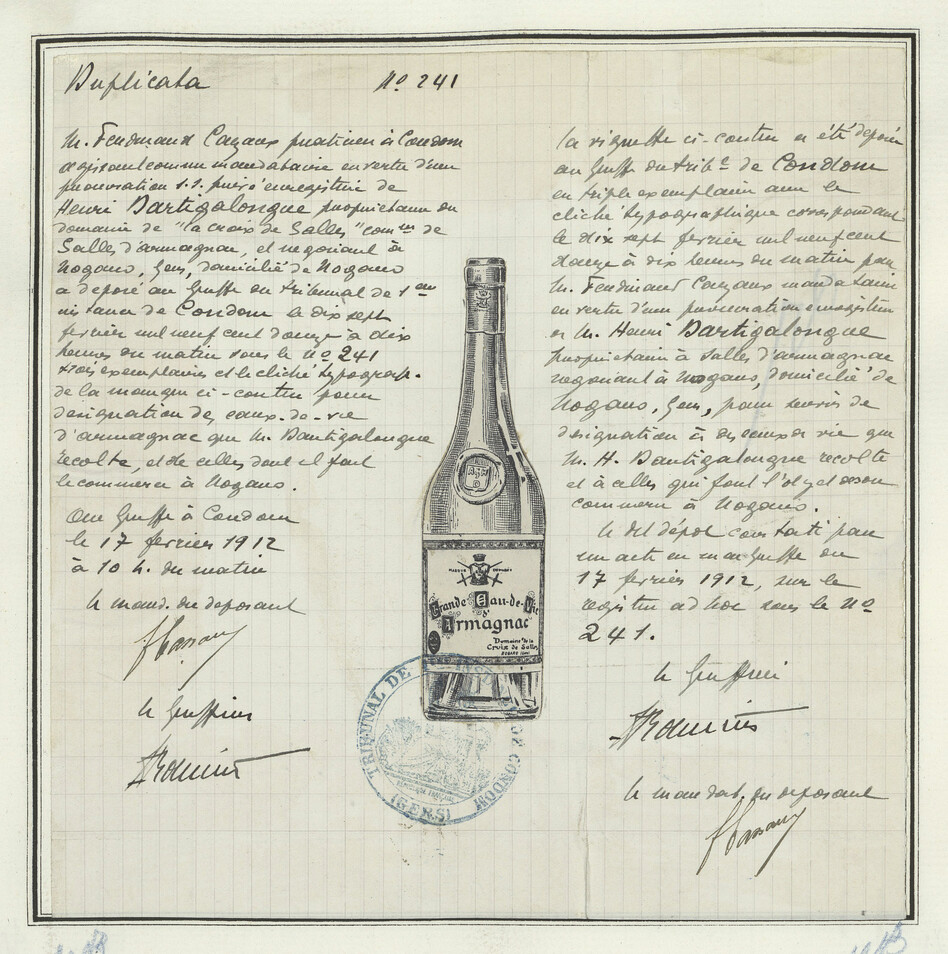 Duplicata
No 241
M. Ferdinand Cazaux praticien à Condom
agissant comme mandataire en vertu d'une
procuration s.s. privé enregistrée de
Henri Dartigalongue propriétaire du
domaine de "la croix de Salles" comne de
Salles d'armagnac, et négociant à
Nogaro, Gers, domicilié de Nogaro
a déposé au Greffe du tribunal de 1ere
instance de Condom le dix sept
février mil neuf cent douze à dix
heures du matin sous le No 241
trois exemplaires et le cliché typograp.
de la marque ci-contre pour
désignation des eaux-de-vie
d'armagnac que M. Dartigalongue
récolte, et de celles dont il fait
le commerce à Nogaro.
Au Greffe à Condom
le 17 février 1912
à 10 h. du matin
le mand. du déposant
le Greffier
la vignette ci-contre a été déposée
au Greffe du tribal de Condom
en triple exemplaire avec le
cliché typographique correspondant
le dix sept février mil neuf cent
douze à dix heures du matin par
M. Ferdinand Cazaux mandataire
en vertu d'une procuration enregistrée
de M. Henri Dartigalongue
propriétaire à Salles d'armagnac
négociant à Nogaro, domicilié de
Nogaro, Gers, pour servir de
désignation à des eaux de vie que
M. H. Dartigalongue récolte
et à celles qui font l'objet de son
commerce à Nogaro.
le dit dépôt constaté par
un acte en mon Greffe du
17 février 1912, sur le
registre ad hoc sous le No
241.
le Greffier
le mandat. du déposant
Grande Eau-de-Vie
d'Armagnac
Domaine de la
Croix de Salles
TRIBUNAL DE 1ère INSTCE DE CONDOM
(GERS)